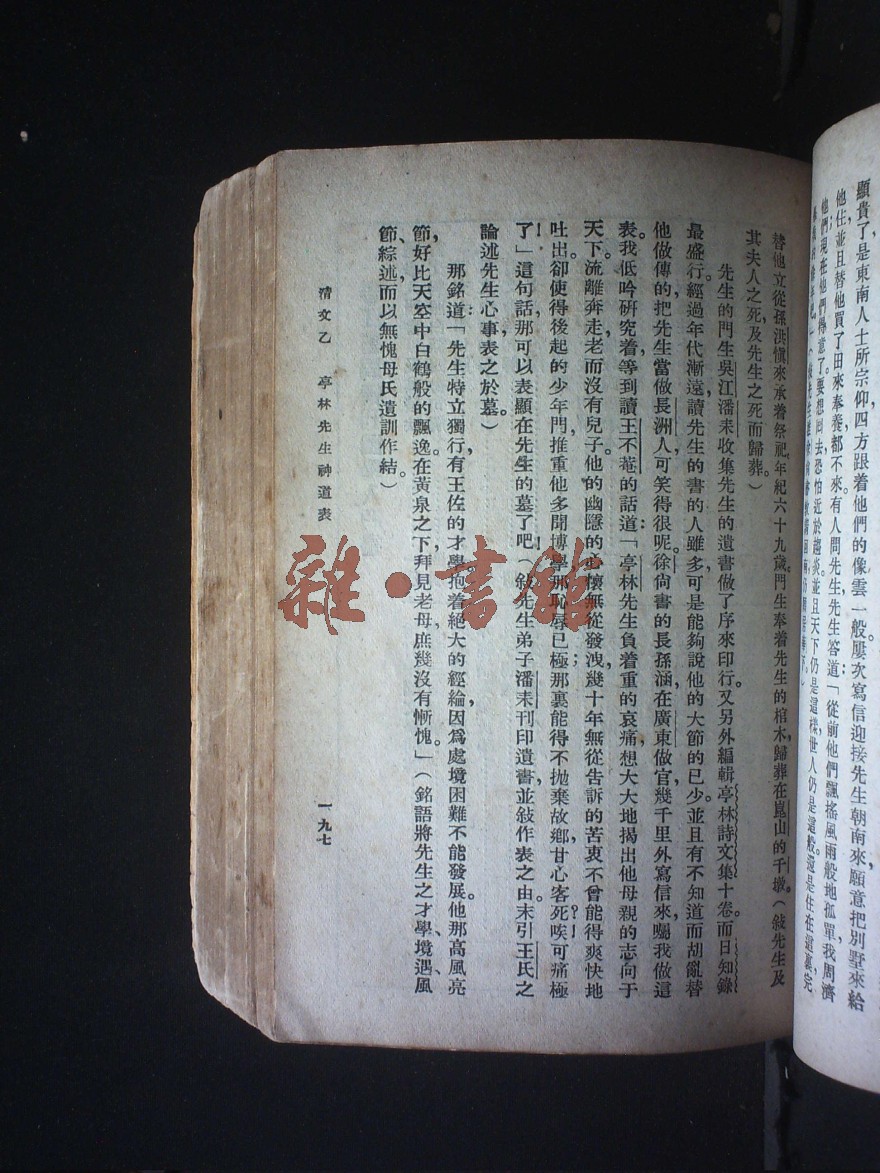 顯貴了是東南人士所宗仰四方跟着他們的像雲一般屢次寫信迎接先生朝南來願意把別墅來給
他住；並且替他買了田來奉養都不來。有人問先生先生答道：「從前他們飄搖風雨般地孤單我周濟
他們現在他們得意了要想回去恐怕近於趨炎並且天下仍是這樣世人仍是這般還是住在這裏完
替他立從孫洪愼來承着祭祀年紀六十九歲。門生奉着先生的棺木歸葬在崑山的千墩。（敍先生及
其夫人之死及先生之死而歸葬。）
先生的門生吳江潘耒收集先生的遺書做了序來印行。又另外編輯亭林詩文集十卷。而日知錄
最盛行。經過年代漸遠讀先生的書的人雖多可是能夠說他的大節的已少。並且有不知道而胡亂替
他做傳的，把先生當做長洲人可笑得很呢。徐尙書的長孫涵在廣東做官，幾千里外寫信來囑我做這
表。我低吟研究着等到讀王不菴的話道：「亭林先生負着重的哀痛，想大大地揭出他母親的志向于
天下。流離奔走，老而沒有兒子。他的幽隱的心懷無從發洩，幾十年無從告訴的苦衷不曾能得爽快地
吐出卻使得後起的少年門，推重他多聞博學那恥辱已極那裏能得不抛棄故鄉甘心客死？唉！可痛極
了！」這句話那可以表顯在先生的墓了吧！（敍先生弟子潘耒刊印遺書並敍作表之由。末引王氏之
論述先生心事表之於墓。）
那銘道：「先生特立獨行，有王佐的才學，抱着絕大的經綸，因爲處境困難不能發展。他那高風亮
節，好比天空中白鶴般的飄逸。在黃泉之下拜見老母，庶幾沒有慚愧。」（銘語將先生之才學、境遇、風
節、綜述，而以無愧母氏遺訓作結。）
清文乙　亭林先生神道表
一九七
雜·書館